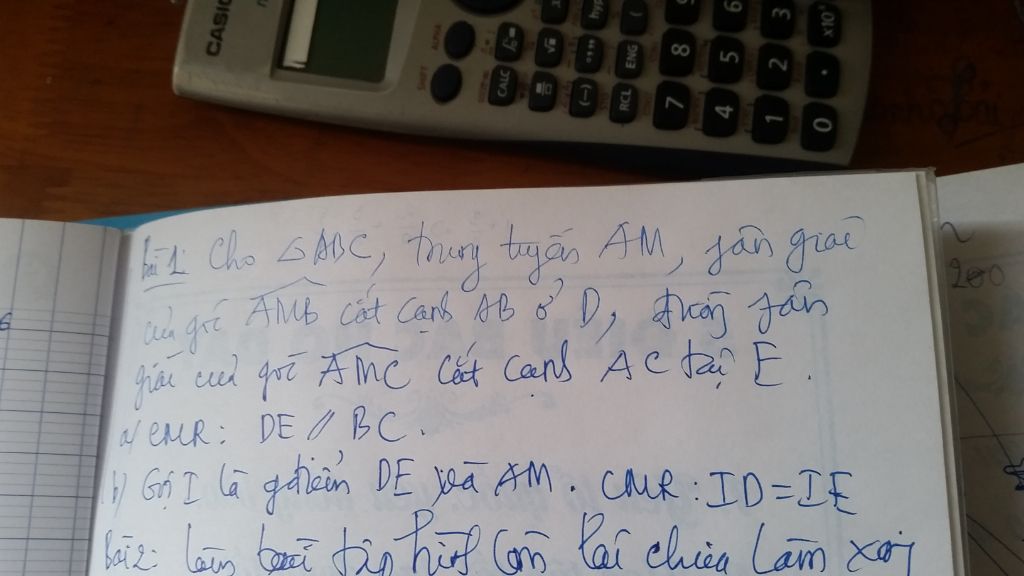 CASIO
ALPHA
SHIFT
CALC
hyp
(
(-)
RCL
ENG
7
8
4
5
6
1
2
3
0
.
x10
Bài 1: Cho △ABC, trung tuyến AM, phân giác
của góc AMB cắt cạnh AB ở D, đường phân
giác của góc AMC cắt cạnh AC tại E.
a/ CMR: DE // BC.
b) Gọi I là gđiểm DE và AM. CMR: ID=IE
Bài 2: làm bài tập hình còn lại chưa làm xong
200